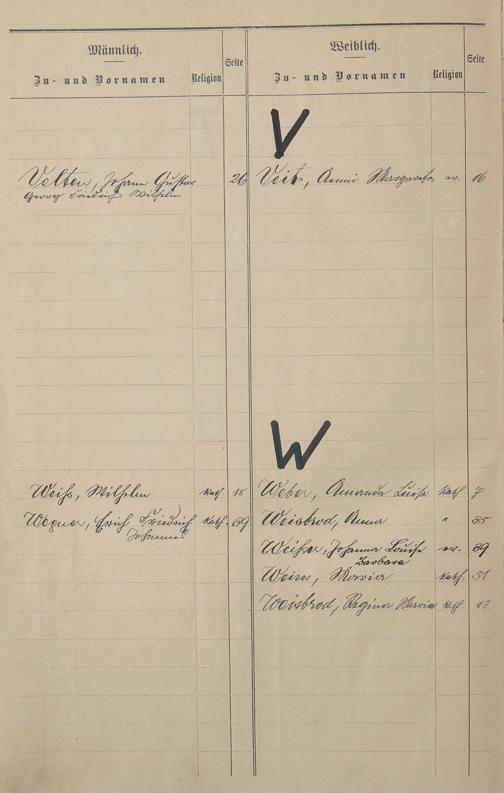 Männlich.
Zu- und Vornamen Religion Seite
Velten, Johann Gustav 26
Georg Friedrich Wilhelm
Weiß, Wilhelm kath. 18
Wegner, Erich Friedrich kath.
Johannes
Weiblich.
Zu- und Vornamen Religion Seite
V
Veit, Aenni Margareta ev. 16
W
Weber, Amanda Luise kath. 7
Weisbrod, Anna " 35
Johanna Louise ev.
Barbara
Maria kath. 51
Weisbrod, Regina Maria kath. 13